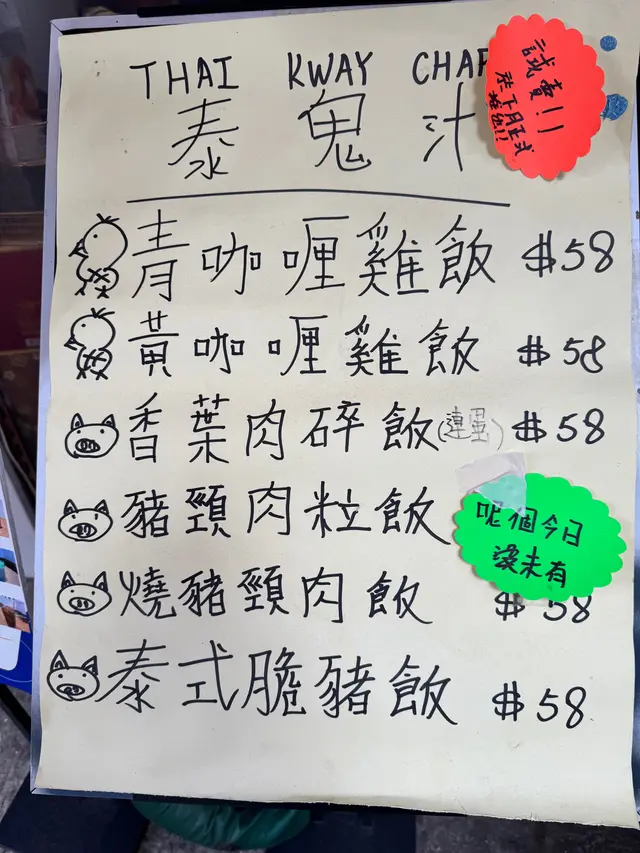 THAI KWAY CHAP
泰鬼汁
試賣!!
於下月正式
推出!!
青咖喱雞飯 $58
黃咖喱雞飯 $58
香葉肉碎飯(連蛋) $58
豬頸肉粒飯
呢個今日
沒未有
燒豬頸肉飯 $58
泰式脆豬飯 $58